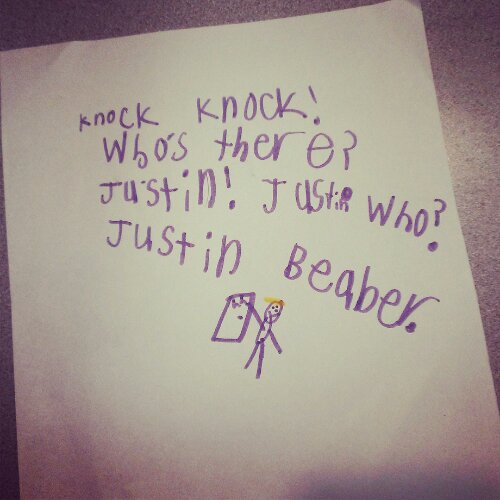 Knock Knock!
Who's there?
Justin! Justin Who?
Justin Beaber.